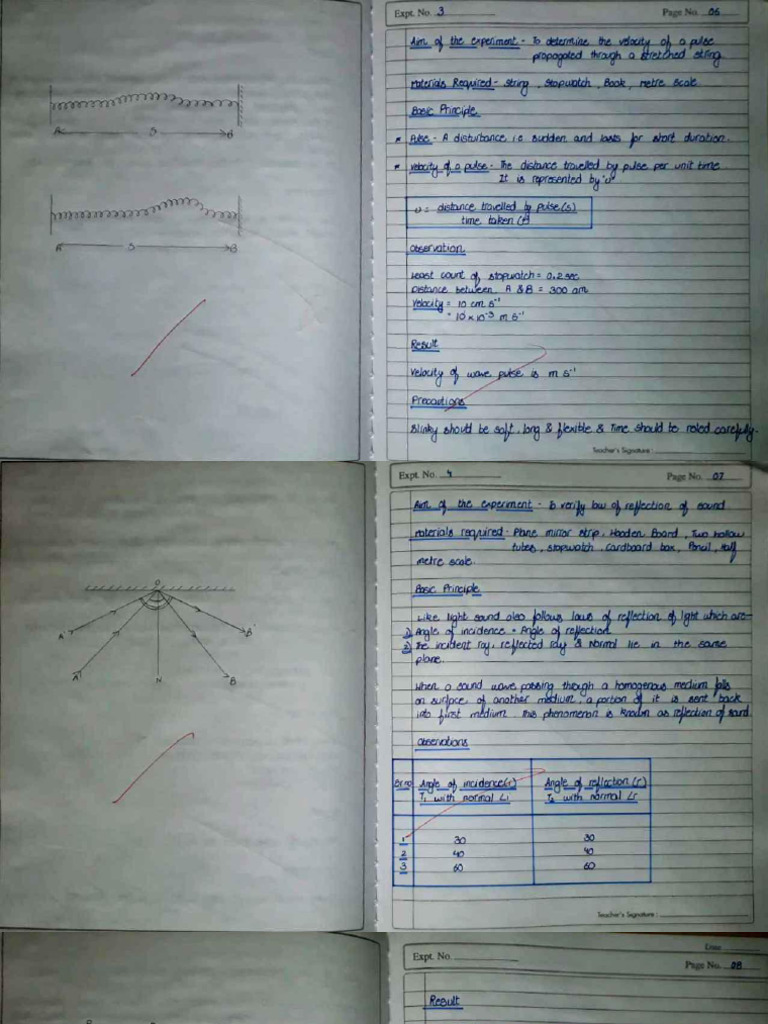 A S B
A S B
Expt. No. 3 Page No. 06
Aim of the experiment - To determine the velocity of a pulse
propogated through a stretched string.
Materials Required - String, Stopwatch, Book, metre scale.
Basic Principle
* Pulse - A disturbance i.e. sudden and lasts for short duration.
* Velocity of a pulse - The distance travelled by pulse per unit time
It is represented by 'v'
v = distance travelled by pulse(s)
time taken (t)
Observation
Least count of stopwatch = 0.2 sec
Distance between A & B = 300 cm
Velocity = 10 cm s⁻¹
= 10 × 10⁻³ m s⁻¹
Result
Velocity of wave pulse is m s⁻¹
Precautions
Slinky should be soft, long & flexible & Time should be noted carefully.
Teacher's Signature :
O
A' B'
A N B
Expt. No. 4 Page No. 07
Aim of the experiment - To verify law of reflection of sound
Materials required - Plane mirror strip, Wooden Board, Two hollow
tubes, stopwatch, cardboard box, Pencil, Half
metre scale.
Basic Principle
Like light sound also follows laws of reflection of light which are-
1) Angle of incidence = Angle of reflection
2) The incident ray, reflected ray & Normal lie in the same
plane.
When a sound wave passing through a homogenous medium falls
on surface of another medium, a portion of it is sent back
into first medium. This phenomenon is known as reflection of sound
Observations
Sr no Angle of incidence(i) Angle of reflection (r)
T₁ with normal ∠i T₂ with normal ∠r
1 30 30
2 40 40
3 60 60
Teacher's Signature :
Date
Expt. No. Page No. 08
Result